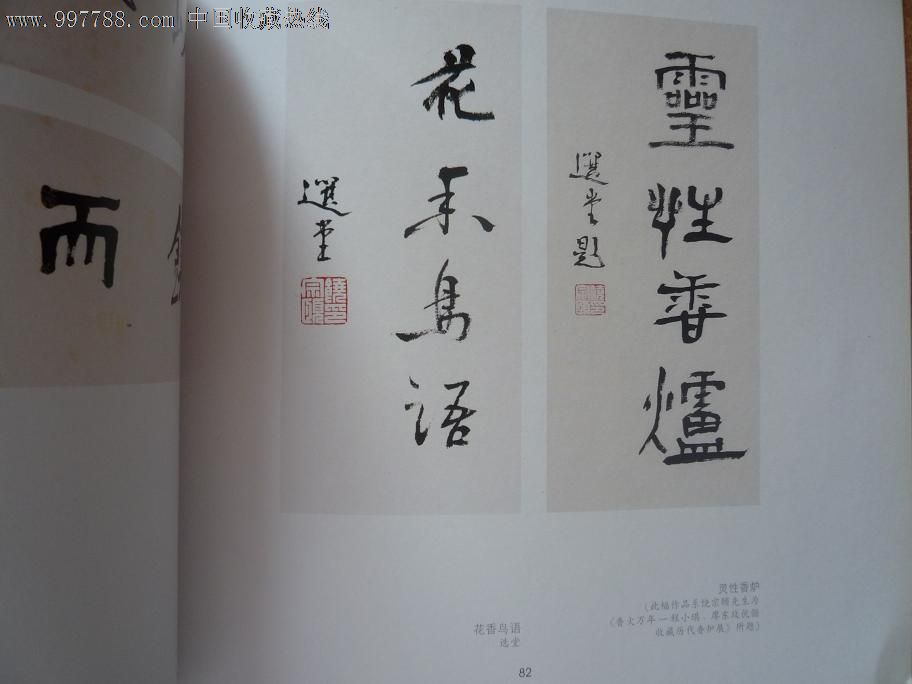 www.997788.com 中国收藏热线
而
靈性香爐
選堂題
花香鳥語
選堂
饒宗頤印
灵性香炉
(此幅作品系饶宗颐先生为
《香火万年—程小琪、廖东玫伉俪
收藏历代香炉展》所题)
花香鸟语
选堂
82